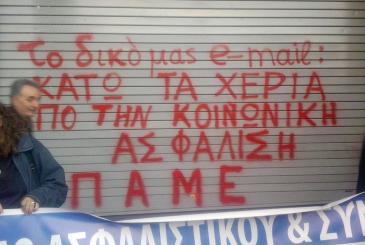 το δικό μας e-mail:
ΚΑΤΩ ΤΑ ΧΕΡΙΑ
ΠΟ ΤΗΝ ΚΟΙΝΩΝΙΚΗ
ΑΣΦΑΛΙΣΗ
ΠΑΜΕ
ΑΣΦΑΛΙΣΤΙΚΟΥ & ΣΥΝ